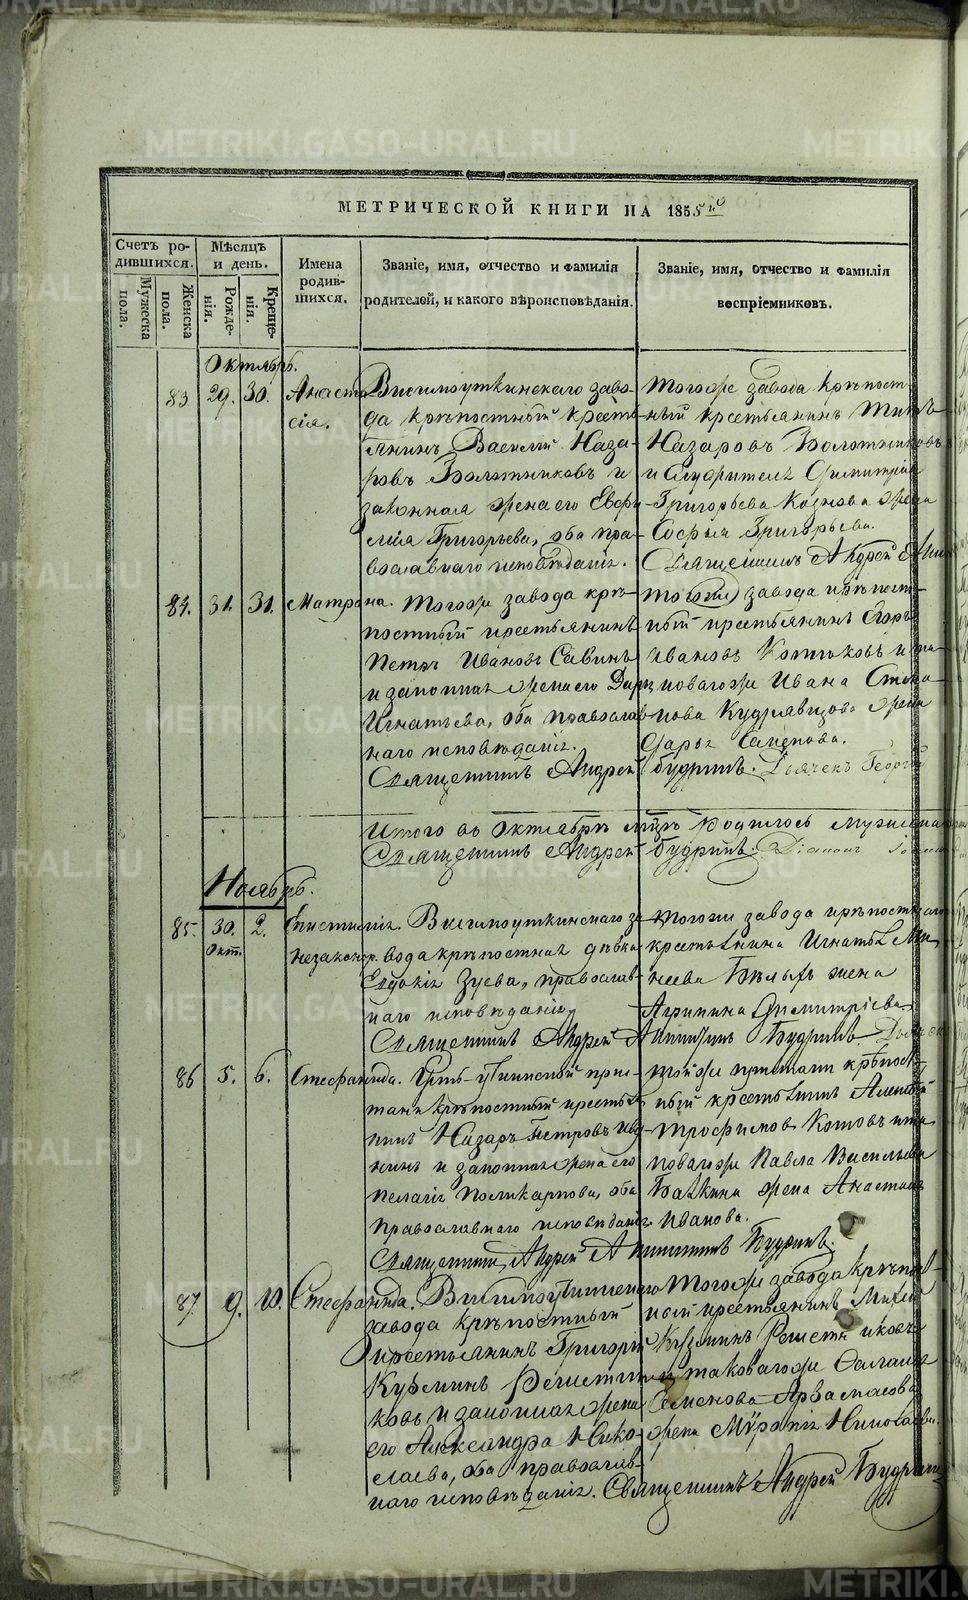 МЕТРИЧЕСКОЙ КНИГИ НА 1855 й
Счетъ ро-
дившихся.
Мужеска
пола.
Женска
пола.
Мѣсяцъ
и день.
Рожде-
нія.
Креще-
нія.
Имена
родив-
шихся.
Званіе, имя, отчество и фамилія
родителей, и какого вѣроисповѣданія.
Званіе, имя, отчество и фамилія
воспріемниковъ.
Октябрь.
83 29. 30. Анаста
сія.
Висимоуткинскаго заво-
да крѣпостный кресть
янинъ Василій Наза-
ровъ Болотниковъ и
законная жена его Евфи-
мія Григорьева, оба пра-
вославнаго исповѣданія.
Тогоже завода крѣпост-
ный крестьянинъ Титъ
Назаровъ Болотниковъ
и Димитрія
Григорьева жена
Софья Григорьева.
Священникъ Андрей
84. 31. 31. Матрона.
Тогоже завода крѣ-
постный крестьянинъ
Петръ Ивановъ Савинъ
и законная жена его Дарья
Игнатьева, оба православ-
наго исповѣданія.
Тогоже завода крѣпост-
ный крестьянинъ Егоръ
Ивановъ Котюковъ и та-
коваго же Ивана Степа-
нова Кудрявцова жена
Дарья Семенова.
Священникъ Андрей Будринъ. Дьячекъ Георгій
Итого въ Октябрѣ м-цѣ родилось мужеска
Священникъ Андрей Будринъ.
Ноябрь.
85. 30. 2.
Окт.
незаконор.
Висимоуткинскаго за-
вода крѣпостная дѣвка
Евдокія Зуева, православ-
наго исповѣданія
Тогоже завода крѣпостнаго
крестьянина Игнатья
Бѣлыхъ жена
Агрипина Димитріева.
Священникъ Андрей Будринъ.
86 5. 6. Стефанида.
Усть-уткинской прис-
тани крѣпостный кресть
нинъ Назаръ Петровъ
и законная жена его
Пелагія Поликарпова, оба
православнаго исповѣданія
Тойже пристани крѣпост-
ный крестьянинъ Алексѣй
Трофимовъ Котовъ и та
коваго же Павла Васильева
Бабкина жена Анастасія
Иванова.
Священникъ Андрей Будринъ.
87 9. 10. Стефанида.
Висимоуткинскаго
завода крѣпостный
крестьянинъ Григорій
Кузминъ Решетни
ковъ и законная жена
его Александра Нико
лаева, оба православ-
наго исповѣданія.
Тогоже завода крѣпост-
ный крестьянинъ Михей
Кузминъ Решетниковъ
и таковагоже
Семенова Арзамасова
жена Николаева.
Священникъ Андрей Будринъ
METRIKI.GASO-URAL.RU